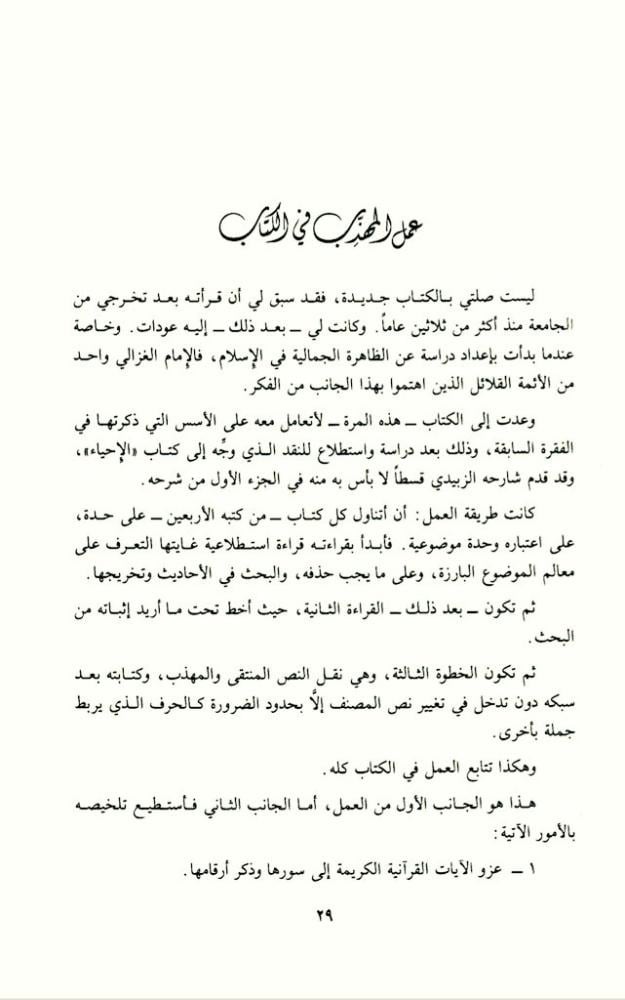 عمل المهذب في الكتاب
ليست صلتي بالكتاب جديدة، فقد سبق لي أن قرأته بعد تخرجي من
الجامعة منذ أكثر من ثلاثين عاماً. وكانت لي ــ بعد ذلك ــ إليه عودات. وخاصة
عندما بدأت بإعداد دراسة عن الظاهرة الجمالية في الإسلام، فالإمام الغزالي واحد
من الأئمة القلائل الذين اهتموا بهذا الجانب من الفكر.
وعدت إلى الكتاب ــ هذه المرة ــ لأتعامل معه على الأسس التي ذكرتها في
الفقرة السابقة، وذلك بعد دراسة واستطلاع للنقد الذي وجِّه إلى كتاب «الإحياء»،
وقد قدم شارحه الزبيدي قسطاً لا بأس به منه في الجزء الأول من شرحه.
كانت طريقة العمل: أن أتناول كل كتاب ــ من كتبه الأربعين ــ على حدة،
على اعتباره وحدة موضوعية. فأبدأ بقراءته قراءة استطلاعية غايتها التعرف على
معالم الموضوع البارزة، وعلى ما يجب حذفه، والبحث في الأحاديث وتخريجها.
ثم تكون ــ بعد ذلك ــ القراءة الثانية، حيث أخط تحت ما أريد إثباته من
البحث.
ثم تكون الخطوة الثالثة، وهي نقل النص المنتقى والمهذب، وكتابته بعد
سبكه دون تدخل في تغيير نص المصنف إلَّا بحدود الضرورة كالحرف الذي يربط
جملة بأخرى.
وهكذا تتابع العمل في الكتاب كله.
هذا هو الجانب الأول من العمل، أما الجانب الثاني فأستطيع تلخيصه
بالأمور الآتية:
١ ــ عزو الآيات القرآنية الكريمة إلى سورها وذكر أرقامها.
٢٩